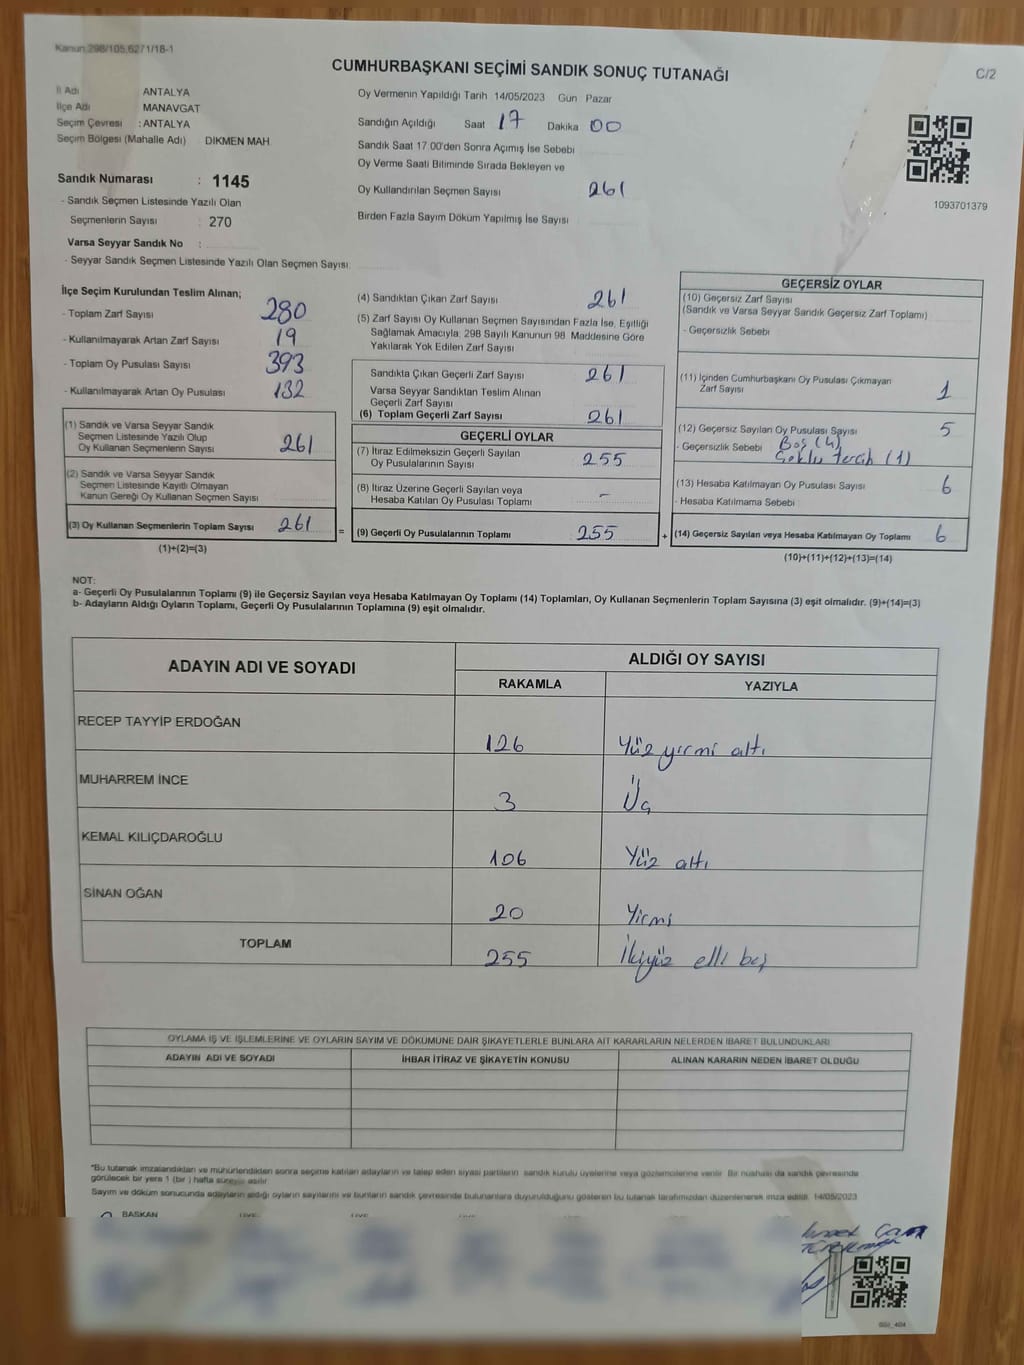 Kanun:298/105,6271/18-1
CUMHURBAŞKANI SEÇİMİ SANDIK SONUÇ TUTANAĞI
C/2
İl Adı ANTALYA
İlçe Adı MANAVGAT
Seçim Çevresi : ANTALYA
Seçim Bölgesi (Mahalle Adı) DİKMEN MAH.
Sandık Numarası : 1145
- Sandık Seçmen Listesinde Yazılı Olan
Seçmenlerin Sayısı : 270
Varsa Seyyar Sandık No :
- Seyyar Sandık Seçmen Listesinde Yazılı Olan Seçmen Sayısı:
Oy Vermenin Yapıldığı Tarih 14/05/2023 Gün Pazar
Sandığın Açıldığı Saat 17 Dakika 00
Sandık Saat 17.00'den Sonra Açımış İse Sebebi
Oy Verme Saati Bitiminde Sırada Bekleyen ve
Oy Kullandırılan Seçmen Sayısı 261
Birden Fazla Sayım Döküm Yapılmış İse Sayısı
1093701379
İlçe Seçim Kurulundan Teslim Alınan;
- Toplam Zarf Sayısı 280
- Kullanılmayarak Artan Zarf Sayısı 19
- Toplam Oy Pusulası Sayısı 393
- Kullanılmayarak Artan Oy Pusulası 132
(1) Sandık ve Varsa Seyyar Sandık
Seçmen Listesinde Yazılı Olup
Oy Kullanan Seçmenlerin Sayısı 261
(2) Sandık ve Varsa Seyyar Sandık
Seçmen Listesinde Kayıtlı Olmayan
Kanun Gereği Oy Kullanan Seçmen Sayısı
(3) Oy Kullanan Seçmenlerin Toplam Sayısı 261 =
(1)+(2)=(3)
(4) Sandıktan Çıkan Zarf Sayısı 261
(5) Zarf Sayısı Oy Kullanan Seçmen Sayısından Fazla İse, Eşitliği
Sağlamak Amacıyla; 298 Sayılı Kanunun 98. Maddesine Göre
Yakılarak Yok Edilen Zarf Sayısı
Sandıkta Çıkan Geçerli Zarf Sayısı 261
Varsa Seyyar Sandıktan Teslim Alınan
Geçerli Zarf Sayısı
(6) Toplam Geçerli Zarf Sayısı 261
GEÇERLİ OYLAR
(7) İtiraz Edilmeksizin Geçerli Sayılan
Oy Pusulalarının Sayısı 255
(8) İtiraz Üzerine Geçerli Sayılan veya
Hesaba Katılan Oy Pusulası Toplamı -
(9) Geçerli Oy Pusulalarının Toplamı 255 +
GEÇERSİZ OYLAR
(10) Geçersiz Zarf Sayısı
(Sandık ve Varsa Seyyar Sandık Geçersiz Zarf Toplamı)
- Geçersizlik Sebebi
(11) İçinden Cumhurbaşkanı Oy Pusulası Çıkmayan
Zarf Sayısı 1
(12) Geçersiz Sayılan Oy Pusulası Sayısı 5
- Geçersizlik Sebebi Boş (4)
Çoklu tercih (1)
(13) Hesaba Katılmayan Oy Pusulası Sayısı 6
- Hesaba Katılmama Sebebi
(14) Geçersiz Sayılan veya Hesaba Katılmayan Oy Toplamı 6
(10)+(11)+(12)+(13)=(14)
NOT:
a- Geçerli Oy Pusulalarının Toplamı (9) ile Geçersiz Sayılan veya Hesaba Katılmayan Oy Toplamı (14) Toplamları, Oy Kullanan Seçmenlerin Toplam Sayısına (3) eşit olmalıdır. (9)+(14)=(3)
b- Adayların Aldığı Oyların Toplamı, Geçerli Oy Pusulalarının Toplamına (9) eşit olmalıdır.
ADAYIN ADI VE SOYADI ALDIĞI OY SAYISI
RAKAMLA YAZIYLA
RECEP TAYYİP ERDOĞAN 126 Yüz yirmi altı
MUHARREM İNCE 3 Üç
KEMAL KILIÇDAROĞLU 106 Yüz altı
SİNAN OĞAN 20 Yirmi
TOPLAM 255 İkiyüz elli beş
OYLAMA İŞ VE İŞLEMLERİNE VE OYLARIN SAYIM VE DÖKÜMÜNE DAİR ŞİKAYETLERLE BUNLARA AİT KARARLARIN NELERDEN İBARET BULUNDUKLARI
ADAYIN ADI VE SOYADI İHBAR İTİRAZ VE ŞİKAYETİN KONUSU ALINAN KARARIN NEDEN İBARET OLDUĞU
"Bu tutanak imzalandıktan ve mühürlendikten sonra seçime katılan adayların ve talep eden siyasi partilerin sandık kurulu üyelerine veya gözlemcilerine verilir. Bir nüshası da sandık çevresinde
görülecek bir yere 1 (bir) hafta süreyle asılır.
Sayım ve döküm sonucunda adayların aldığı oyların sayılarını ve bunların sandık çevresinde bulunanlara duyurulduğunu gösteren bu tutanak tarafımızdan düzenlenerek imza edildi. 14/05/2023
BAŞKAN